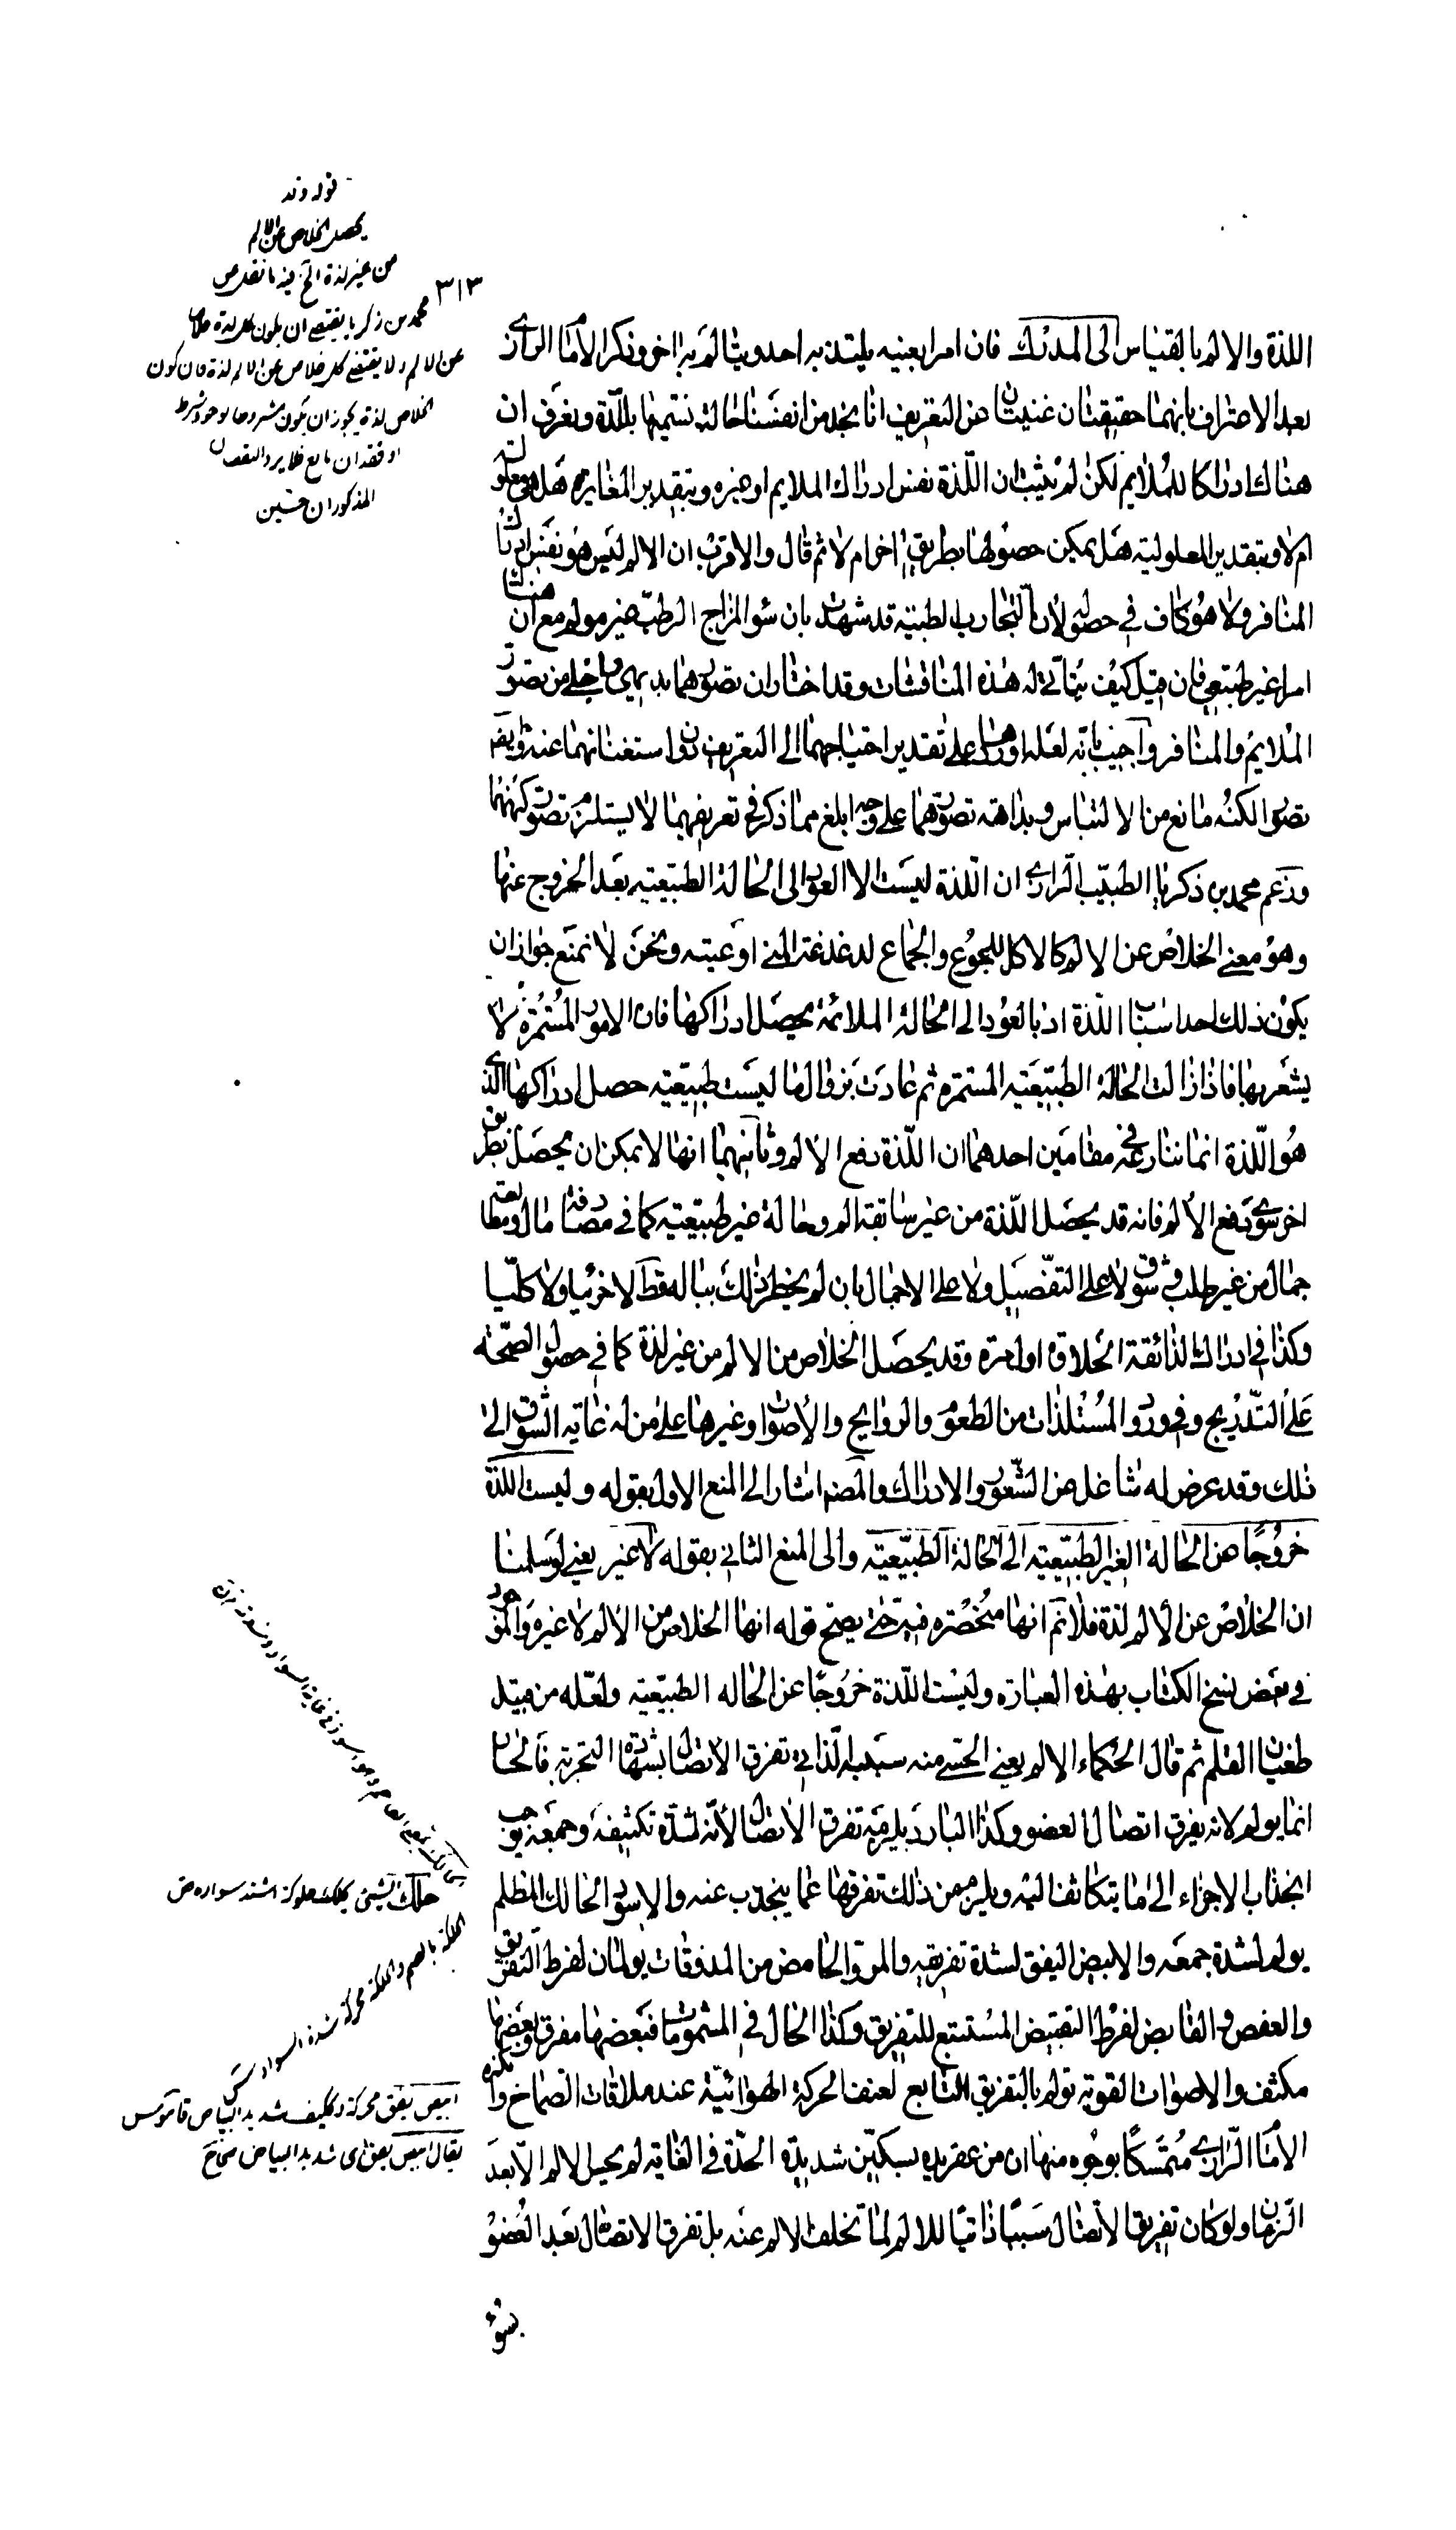 ٣١٣
اللذة والالم بالقياس الى المدرك فان امرا بعينه يلتذ به احد ويتالم به اخر وذكر الامام الرازي
بعد الاعتراف بانهما حقيقتان غنيتان عن التعريف انا نجد من انفسنا حالة نسميها باللذة ونعرف ان
هناك ادراكا للملايم لكن لم يثبت ان اللذة نفس ادراك الملايم او غيره وبتقدير المغايرة هل هي معلولة
ام لا وبتقدير المعلولية هل يمكن حصولها بطريق اخر ام لا ثم قال والاقرب ان الالم ليس هو نفس ادراك
المنافر ولا هو كاف في حصوله لان التجارب الطبية قد شهدت بان سوء المزاج الرطب غير مولم مع ان هناك
امرا غير طبيعي فان قيل كيف يتاتى له هذه المناقشات وقد اختار ان تصورهما بديهي واجلى من تصور
الملايم والمنافر واجيب بانه لعله اوردها على تقدير احتياجهما الى التعريف دون استغنائهما عنه وايضا
تصور الكنه مانع من الالتباس وبداهة تصورهما على وجه ابلغ مما ذكر في تعريفهما لا يستلزم تصور كنههما
وزعم محمد بن زكريا الطبيب الرازي ان اللذة ليست الا العود الى الحالة الطبيعية بعد الخروج عنها
وهو معنى الخلاص عن الالم كالاكل للجوع والجماع لدغدغة المني اوعيته ونحن لا نمنع جواز ان
يكون ذلك احد اسباب اللذة اذ بالعود الى الحالة الملائمة يحصل ادراكها فان الامور المستمرة لا
يشعر بها فاذا زالت الحالة الطبيعية المستمرة ثم عادت بزوال ما ليست طبيعية حصل ادراكها الذي
هو اللذة انما ننازعه في مقامين احدهما ان اللذة دفع الالم وثانيهما انها لا يمكن ان يحصل بطريق
اخر سوى دفع الالم فانه قد يحصل اللذة من غير سابقة الم وحالة غير طبيعية كما في مصادفة مال ومطالعة
جمال من غير طلب وشوق لا على التفصيل ولا على الاجمال بان لم يخطر ذلك بباله قط لا جزئيا ولا كليا
وكذا في ادراك الذائقة الحلاوة اول مرة وقد يحصل الخلاص من الالم من غير لذة كما في حصول الصحة
على التدريج وفي ورود المستلذات من الطعوم والروايح والاصوات وغيرها على من له غاية الشوق الى
ذلك وقد عرض له شاغل عن الشعور والادراك والمصنف اشار الى المنع الاول بقوله وليست اللذة
خروجا عن الحالة الغير الطبيعية الى الحالة الطبيعية والى المنع الثاني بقوله لا غير يعني لو سلمنا
ان الخلاص عن الالم لذة فلا نم انها منحصرة فيه حتى يصح قوله انها الخلاص من الالم لا غير والموجود
في بعض نسخ الكتاب بهذه العبارة وليست اللذة خروجا عن الحالة الطبيعية ولعله من قبيل
طغيان القلم ثم قال الحكماء الالم يعني الحسي منه سببه الذاتي تفرق الاتصال بشهادة التجربة فالحار
انما يولم لانه يفرق اتصال العضو وكذا البارد يلزمه تفرق الاتصال لانه لشدة تكثيفه وجمعه يوجب
انجذاب الاجزاء الى ما يتكاثف اليه ويلزم من ذلك تفرقها عما ينجذب عنه والاسود الحالك المظلم
يولم لشدة جمعه والابيض اليقق لشدة تفريقه والمر والحامض من المذوقات يولمان لفرط التفريق
والعفص والقابض لفرط التقبيض المستتبع للتفريق وكذا الحال في المشمومات فبعضها مفرق وبعضها
مكثف والاصوات القوية تولم بالتفريق التابع لعنف الحركة الهوائية عند ملاقات الصماخ وانكره
الامام الرازي متمسكا بوجوه منها ان من عقر يده بسكين شديدة الحدة في الغاية لم يحس الالم الا بعد
الزمان ولو كان تفريق الاتصال سببا ذاتيا للالم لما تخلف الالم عنه بل تفرق الاتصال بعد العضو
بسوء
قوله وقد
يحصل الخلاص عن الالم
من غير لذة الخ فيه ما نقل عن
محمد بن زكريا يقتضي ان يكون كل لذة خلاصا
عن الالم ولا يقتضي كل خلاص عن الالم لذة فان كون
الخلاص لذة يجوز ان يكون مشروطا بوجود شرط
او فقدان مانع فلا يرد النقضان
المذكوران حسين
حلك الشيء يحلك حلوكة اشتد سواده ص
الحلكة بالضم والحلكة محركة شدة السواد
ابيض يقق محركة وككتف شديد البياض قاموس
يقال ابيض يقق اى شديد البياض صحاح